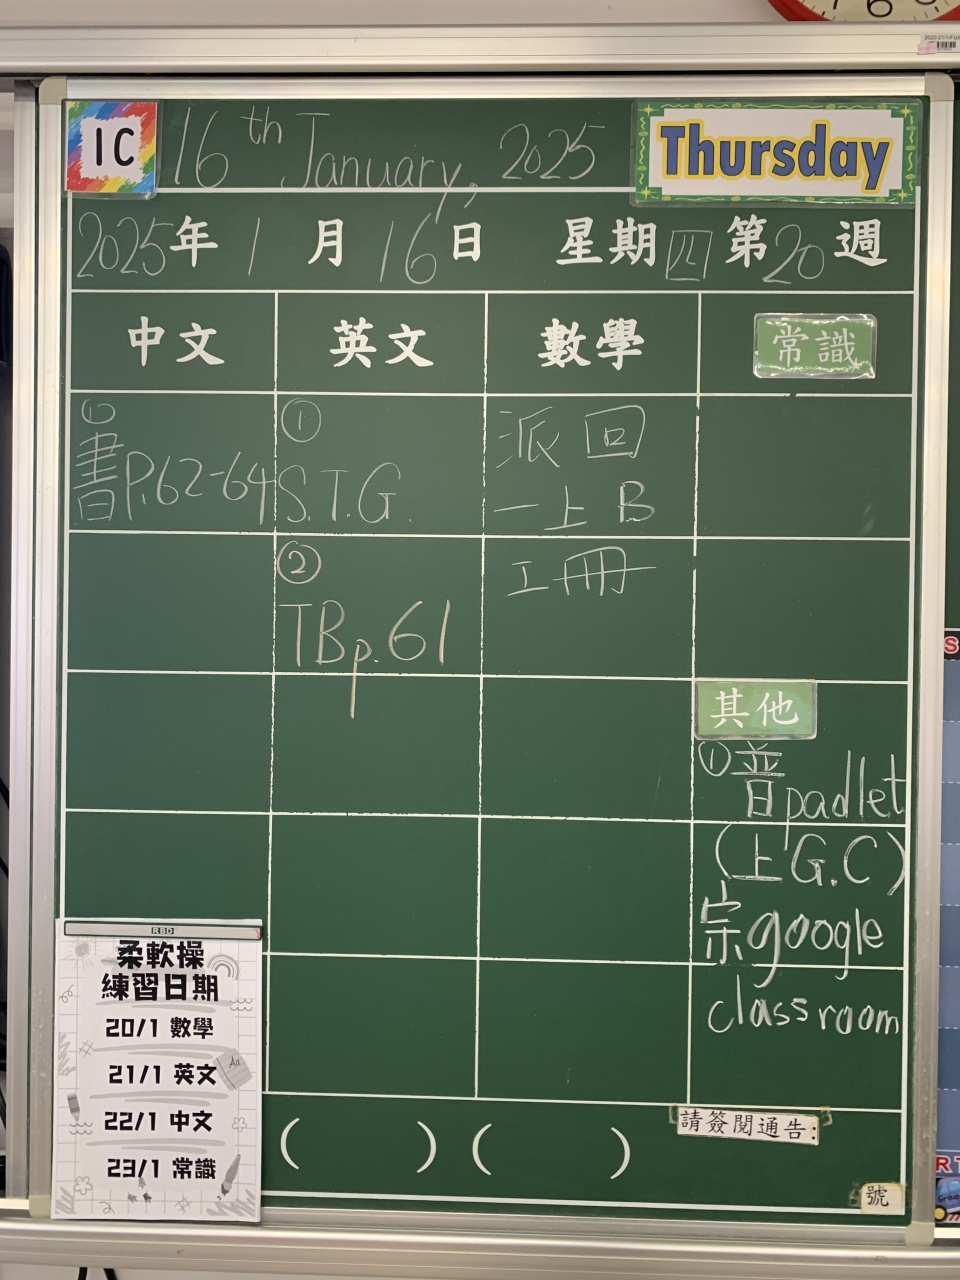 1C
16th January, 2025
Thursday
2025年1月16日 星期四 第20週
中文 英文 數學 常識
①
書P.62-64
①
S.T.G.
②
TB p.61
派回
一上B
工冊
其他
①普padlet
(上G.C)
宗google
classroom
RBD
柔軟操
練習日期
20/1 數學
21/1 英文
22/1 中文
23/1 常識
Aa
( ) ( )
請簽閱通告:
號